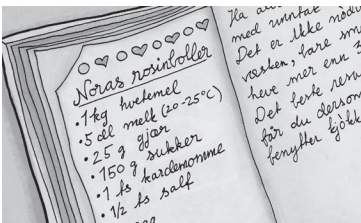 Noras rosinboller
• 1 kg hvetemel
• 5 dl melk (20-25°C)
• 25 g gjær
• 150 g sukker
• 1 ts kardemomme
• 1/2 ts salt
Ha
med unntak
Det er ikke
væsken, bare
heve mer enn
Det beste
får du dersom
benytter